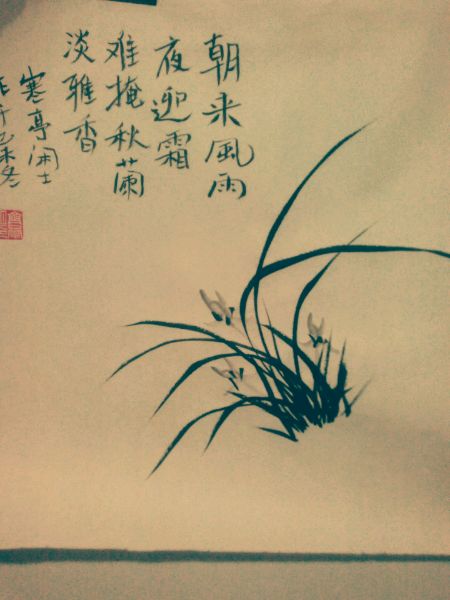 朝来風雨
夜迎霜
难掩秋蘭
淡雅香
寒亭闲士
作于乙未冬